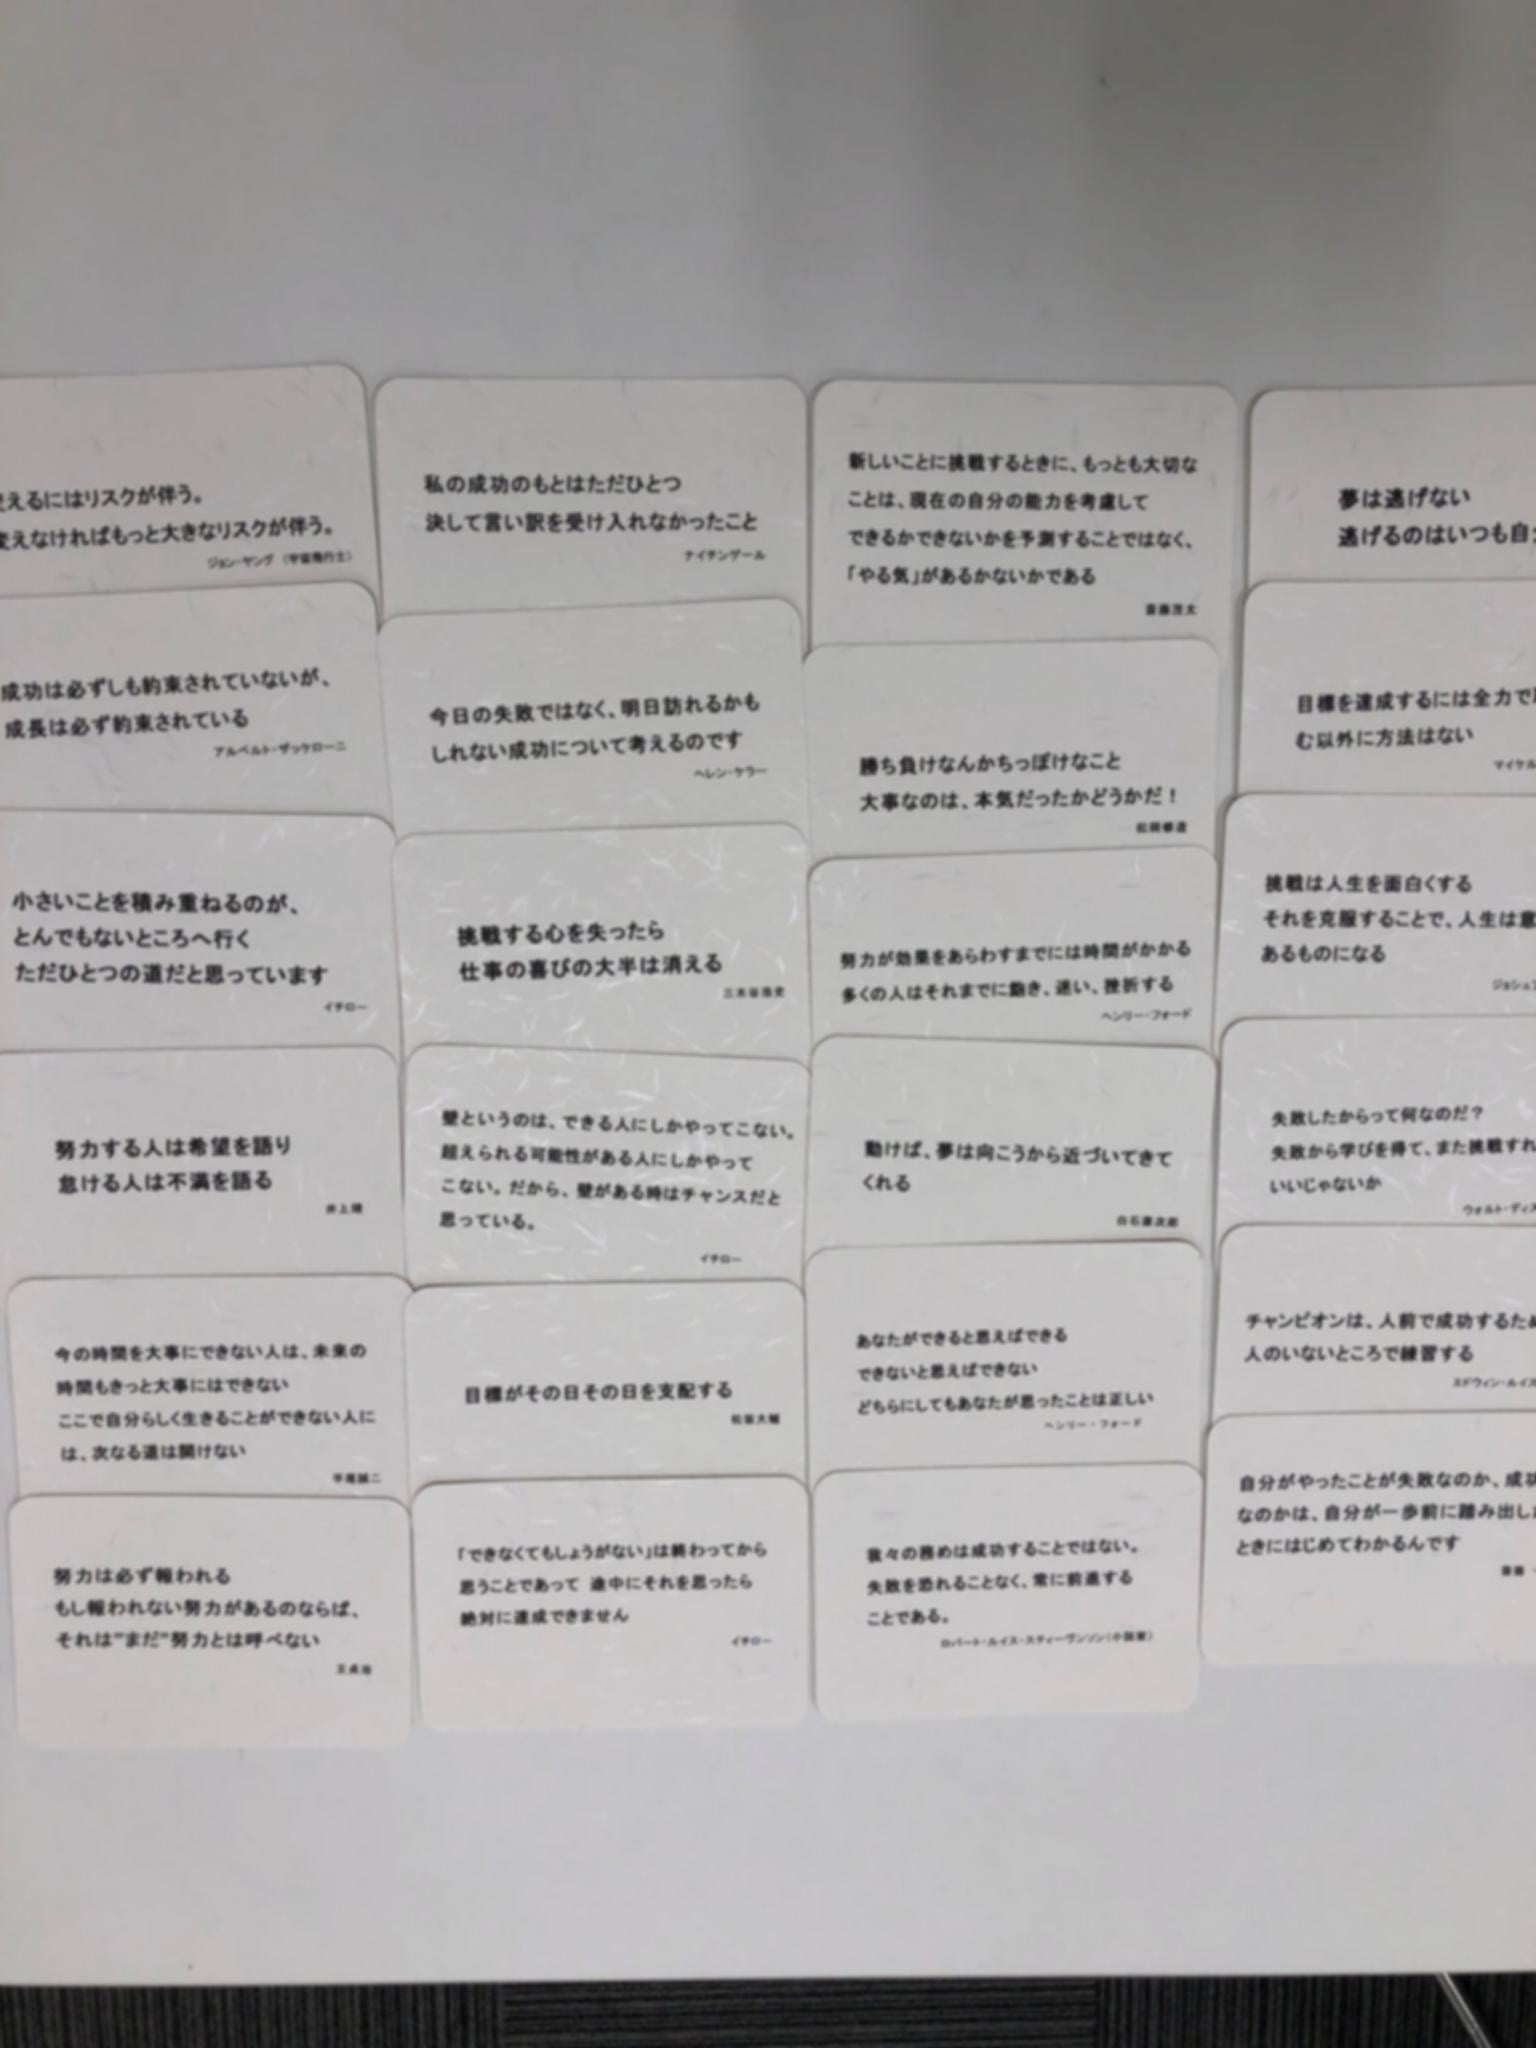 えるにはリスクが伴う。
変えなければもっと大きなリスクが伴う。
ジョン・ヤング（宇宙飛行士）
成功は必ずしも約束されていないが、
成長は必ず約束されている
アルベルト・ザッケローニ
小さいことを積み重ねるのが、
とんでもないところへ行く
ただひとつの道だと思っています
イチロー
努力する人は希望を語り
怠ける人は不満を語る
井上靖
今の時間を大事にできない人は、未来の
時間もきっと大事にはできない
ここで自分らしく生きることができない人に
は、次なる道は開けない
平尾誠二
努力は必ず報われる
もし報われない努力があるのならば、
それは"まだ"努力とは呼べない
王貞治
私の成功のもとはただひとつ
決して言い訳を受け入れなかったこと
ナイチンゲール
今日の失敗ではなく、明日訪れるかも
しれない成功について考えるのです
ヘレン・ケラー
挑戦する心を失ったら
仕事の喜びの大半は消える
三木谷浩史
壁というのは、できる人にしかやってこない。
超えられる可能性がある人にしかやって
こない。だから、壁がある時はチャンスだと
思っている。
イチロー
目標がその日その日を支配する
松坂大輔
「できなくてもしょうがない」は終わってから
思うことであって 途中にそれを思ったら
絶対に達成できません
イチロー
新しいことに挑戦するときに、もっとも大切な
ことは、現在の自分の能力を考慮して
できるかできないかを予測することではなく、
「やる気」があるかないかである
斎藤茂太
勝ち負けなんかちっぽけなこと
大事なのは、本気だったかどうかだ！
松岡修造
努力が効果をあらわすまでには時間がかかる
多くの人はそれまでに飽き、迷い、挫折する
ヘンリー・フォード
動けば、夢は向こうから近づいてきて
くれる
白石康次郎
あなたができると思えばできる
できないと思えばできない
どちらにしてもあなたが思ったことは正しい
ヘンリー・フォード
我々の務めは成功することではない。
失敗を恐れることなく、常に前進する
ことである。
ロバート・ルイス・スティーヴンソン（小説家）
夢は逃げない
逃げるのはいつも自
目標を達成するには全力で
む以外に方法はない
マイケル
挑戦は人生を面白くする
それを克服することで、人生は意
あるものになる
ジョシュ
失敗したからって何なのだ？
失敗から学びを得て、また挑戦すれ
いいじゃないか
ウォルト・ディズ
チャンピオンは、人前で成功するため
人のいないところで練習する
エドウィン・ルイス
自分がやったことが失敗なのか、成功
なのかは、自分が一歩前に踏み出した
ときにはじめてわかるんです